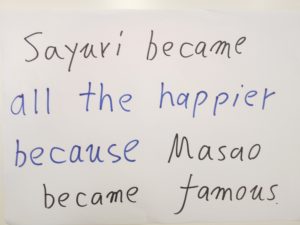 Sayuri became
all the happier
because Masao
became famous.